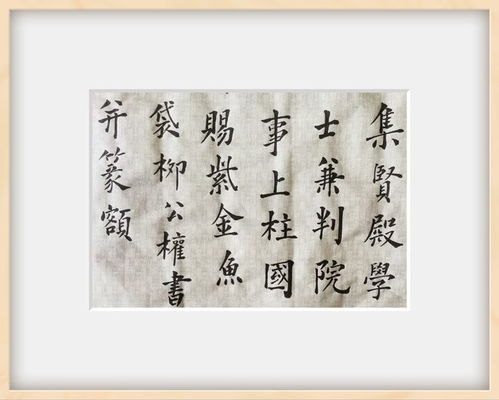 集賢殿學
士兼判院
事上柱國
賜紫金魚
袋柳公權書
并篆額